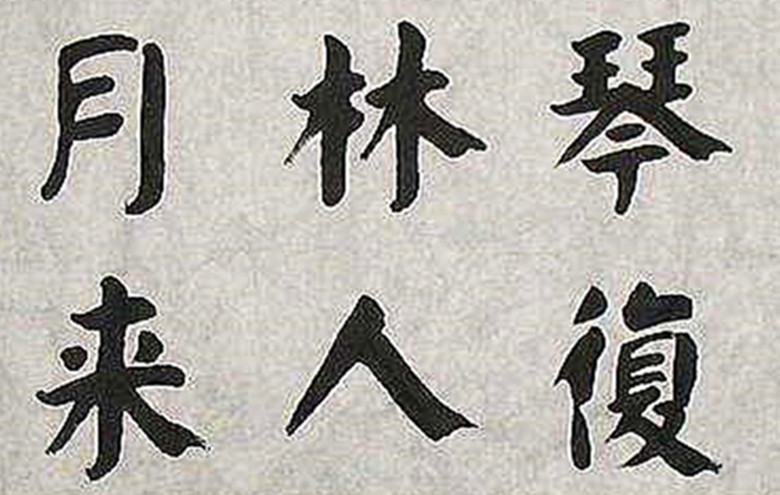 琴復
林人
月来